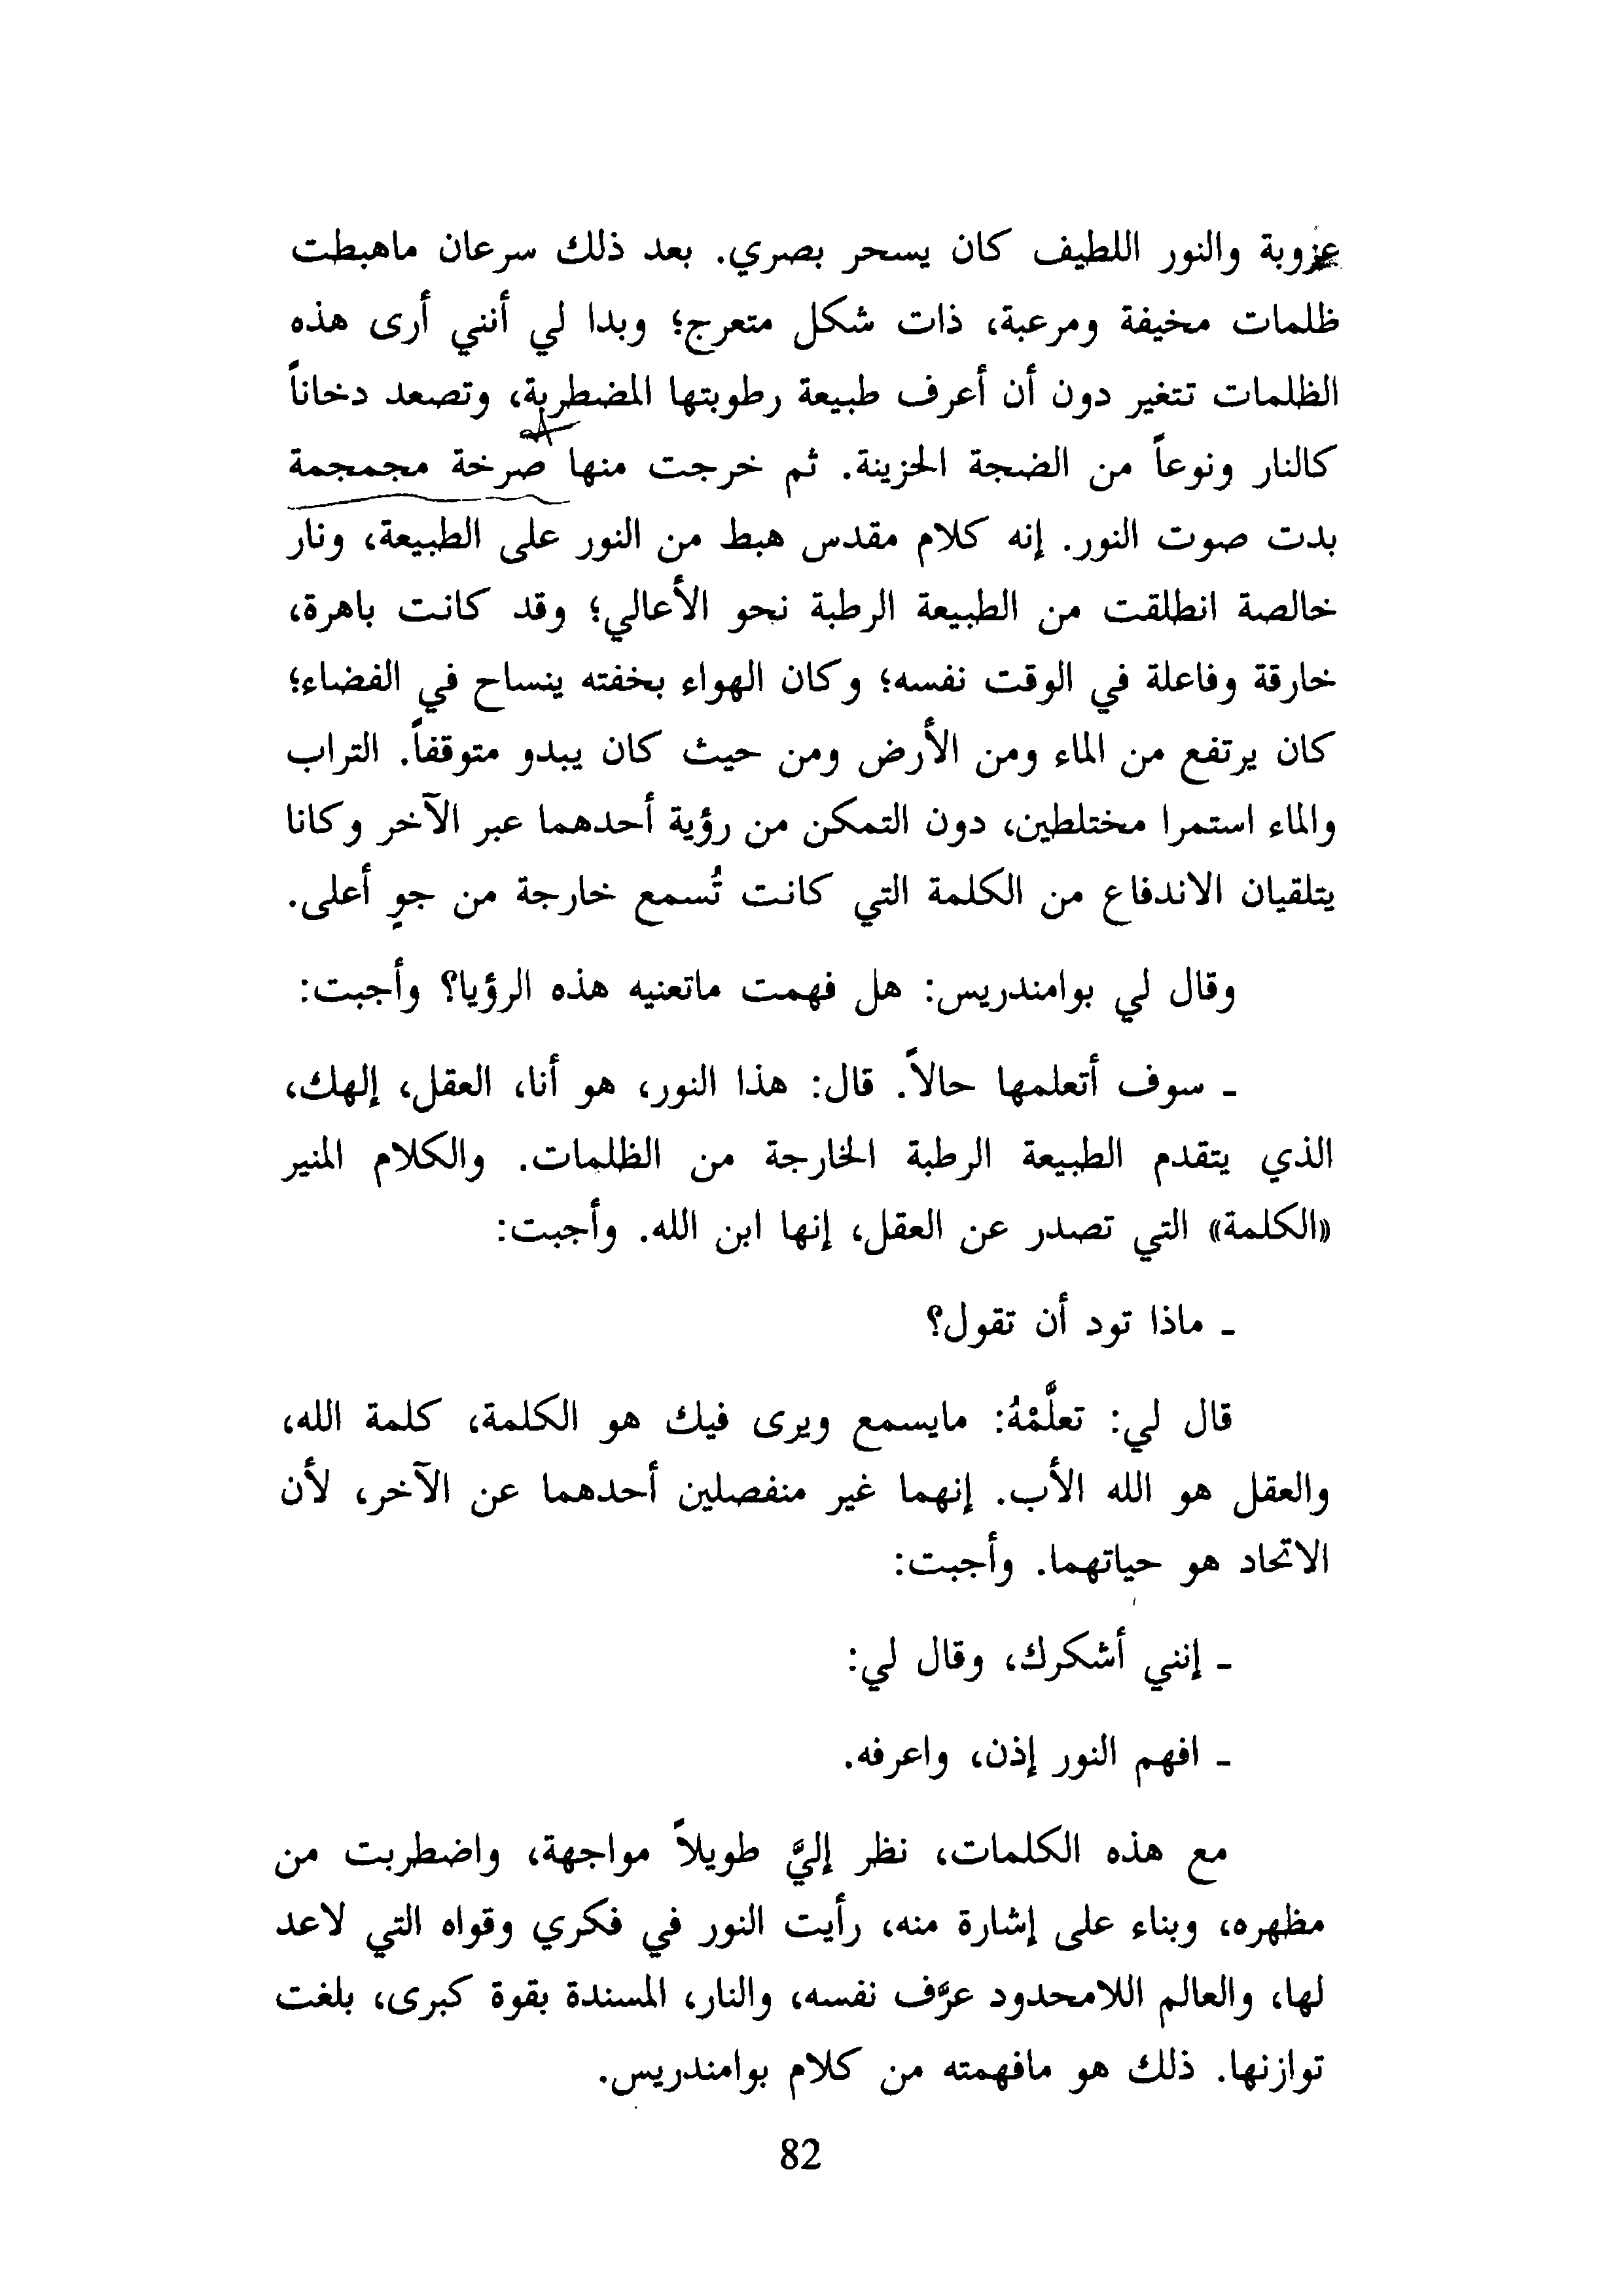 عزوبة والنور اللطيف كان يسحر بصري. بعد ذلك سرعان ماهبطت
ظلمات مخيفة ومرعبة، ذات شكل متعرج؛ وبدا لي أنني أرى هذه
الظلمات تتغير دون أن أعرف طبيعة رطوبتها المضطربة، وتصعد دخاناً
كالنار ونوعاً من الضجة الحزينة. ثم خرجت منها صرخة مجمجمة
بدت صوت النور. إنه كلام مقدس هبط من النور على الطبيعة، ونار
خالصة انطلقت من الطبيعة الرطبة نحو الأعالي؛ وقد كانت باهرة،
خارقة وفاعلة في الوقت نفسه؛ وكان الهواء بخفته ينساح في الفضاء؛
كان يرتفع من الماء ومن الأرض ومن حيث كان يبدو متوقفاً. التراب
والماء استمرا مختلطين، دون التمكن من رؤية أحدهما عبر الآخر وكانا
يتلقيان الاندفاع من الكلمة التي كانت تُسمع خارجة من جوٍ أعلى.
وقال لي بوامندريس: هل فهمت ماتعنيه هذه الرؤيا؟ وأجبت:
ـ سوف أتعلمها حالاً. قال: هذا النور، هو أنا، العقل، إلهك،
الذي يتقدم الطبيعة الرطبة الخارجة من الظلمات. والكلام المنير
«الكلمة» التي تصدر عن العقل، إنها ابن الله. وأجبت:
ـ ماذا تود أن تقول؟
قال لي: تعلَّمْهُ: مايسمع ويرى فيك هو الكلمة، كلمة الله،
والعقل هو الله الأب. إنهما غير منفصلين أحدهما عن الآخر، لأن
الاتحاد هو حياتهما. وأجبت:
ـ إنني أشكرك، وقال لي:
ـ افهم النور إذن، واعرفه.
مع هذه الكلمات، نظر إليَّ طويلاً مواجهة، واضطربت من
مظهره، وبناء على إشارة منه، رأيت النور في فكري وقواه التي لاعد
لها، والعالم اللامحدود عرَّف نفسه، والنار، المسندة بقوة كبرى، بلغت
توازنها. ذلك هو مافهمته من كلام بوامندريس.
82